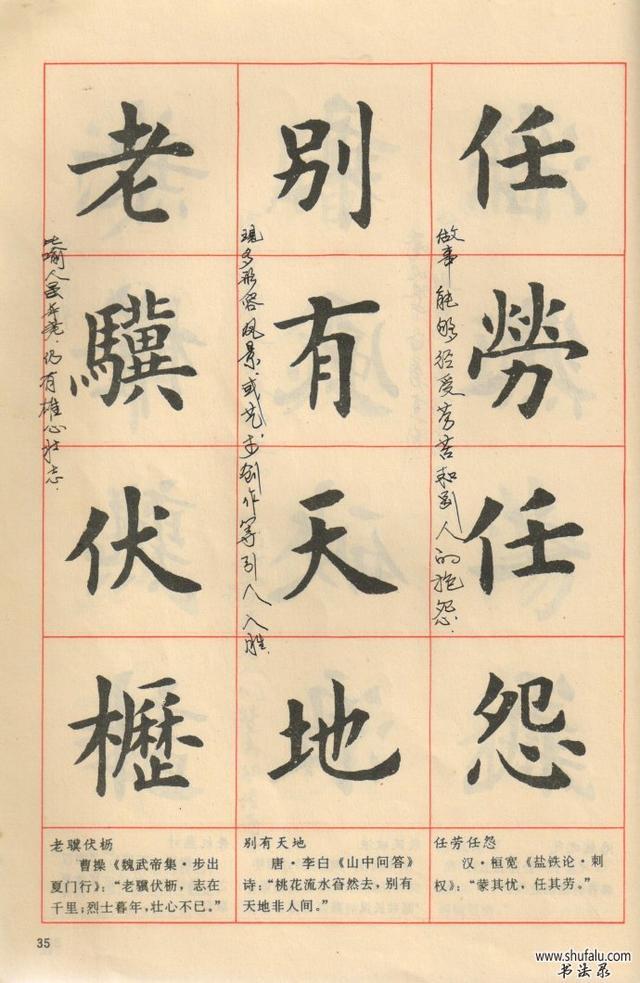 任勞任怨
做事能够经受劳苦和别人的抱怨.
别有天地
现多形容风景.或艺术创作等引人入胜.
老驥伏櫪
比喻人虽年老.仍有雄心壮志.
任劳任怨
汉·桓宽《盐铁论·刺
权》：“蒙其忧，任其劳。”
别有天地
唐·李白《山中问答》
诗：“桃花流水窅然去，别有
天地非人间。”
老骥伏枥
曹操《魏武帝集·步出
夏门行》：“老骥伏枥，志在
千里；烈士暮年，壮心不已。”
35
www.shufalu.com
书法录